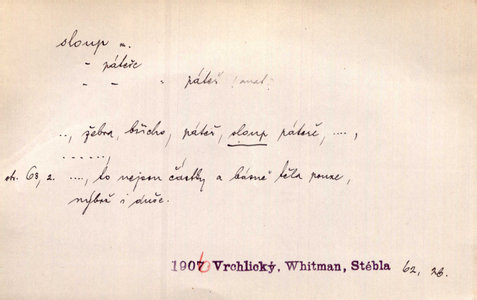 sloup m.
- páteře
- - " páteř (anat.)
.., žebra, břicho, páteř, sloup páteře, ....,
......,
str. 63, 2. ...., to nejsou částky a básně těla pouze,
nýbrž i duše.
1906 Vrchlický, Whitman, Stébla 62, 23.